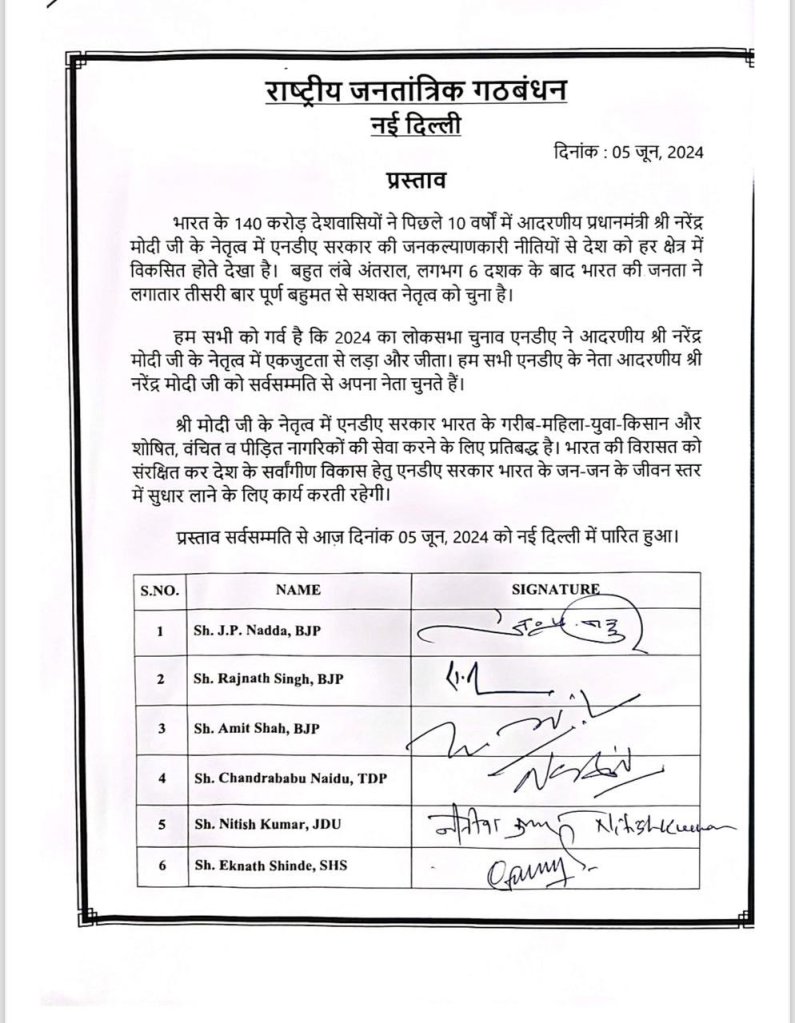 राष्ट्रीय जनतांत्रिक गठबंधन
नई दिल्ली
दिनांक : 05 जून, 2024
प्रस्ताव
भारत के 140 करोड़ देशवासियों ने पिछले 10 वर्षों में आदरणीय प्रधानमंत्री श्री नरेंद्र
मोदी जी के नेतृत्व में एनडीए सरकार की जनकल्याणकारी नीतियों से देश को हर क्षेत्र में
विकसित होते देखा है। बहुत लंबे अंतराल, लगभग 6 दशक के बाद भारत की जनता ने
लगातार तीसरी बार पूर्ण बहुमत से सशक्त नेतृत्व को चुना है।
हम सभी को गर्व है कि 2024 का लोकसभा चुनाव एनडीए ने आदरणीय श्री नरेंद्र
मोदी जी के नेतृत्व में एकजुटता से लड़ा और जीता। हम सभी एनडीए के नेता आदरणीय श्री
नरेंद्र मोदी जी को सर्वसम्मति से अपना नेता चुनते हैं।
श्री मोदी जी के नेतृत्व में एनडीए सरकार भारत के गरीब-महिला-युवा-किसान और
शोषित, वंचित व पीड़ित नागरिकों की सेवा करने के लिए प्रतिबद्ध है। भारत की विरासत को
संरक्षित कर देश के सर्वांगीण विकास हेतु एनडीए सरकार भारत के जन-जन के जीवन स्तर
में सुधार लाने के लिए कार्य करती रहेगी।
प्रस्ताव सर्वसम्मति से आज दिनांक 05 जून, 2024 को नई दिल्ली में पारित हुआ।
S.NO. NAME SIGNATURE
1 Sh. J.P. Nadda, BJP
2 Sh. Rajnath Singh, BJP
3 Sh. Amit Shah, BJP
4 Sh. Chandrababu Naidu, TDP
5 Sh. Nitish Kumar, JDU नीतीश कुमार Nitish Kumar
6 Sh. Eknath Shinde, SHS